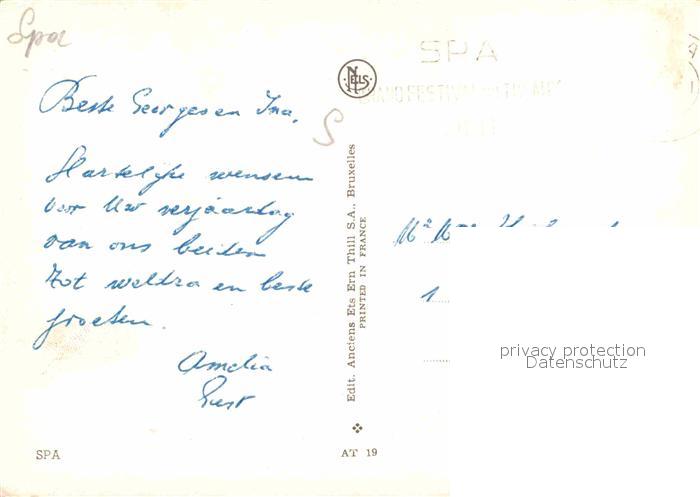 Spa
SPA
NELS
Beste Georges en Ina,
S
Hartelijke wensen
voor Uw verjaardag
van ons beiden
Tot weldra en beste
groeten.
Amelia
Gust
Mr Mme
1
Edit. Anciens Ets Ern Thill S.A., Bruxelles
PRINTED IN FRANCE
privacy protection
Datenschutz
SPA
AT 19